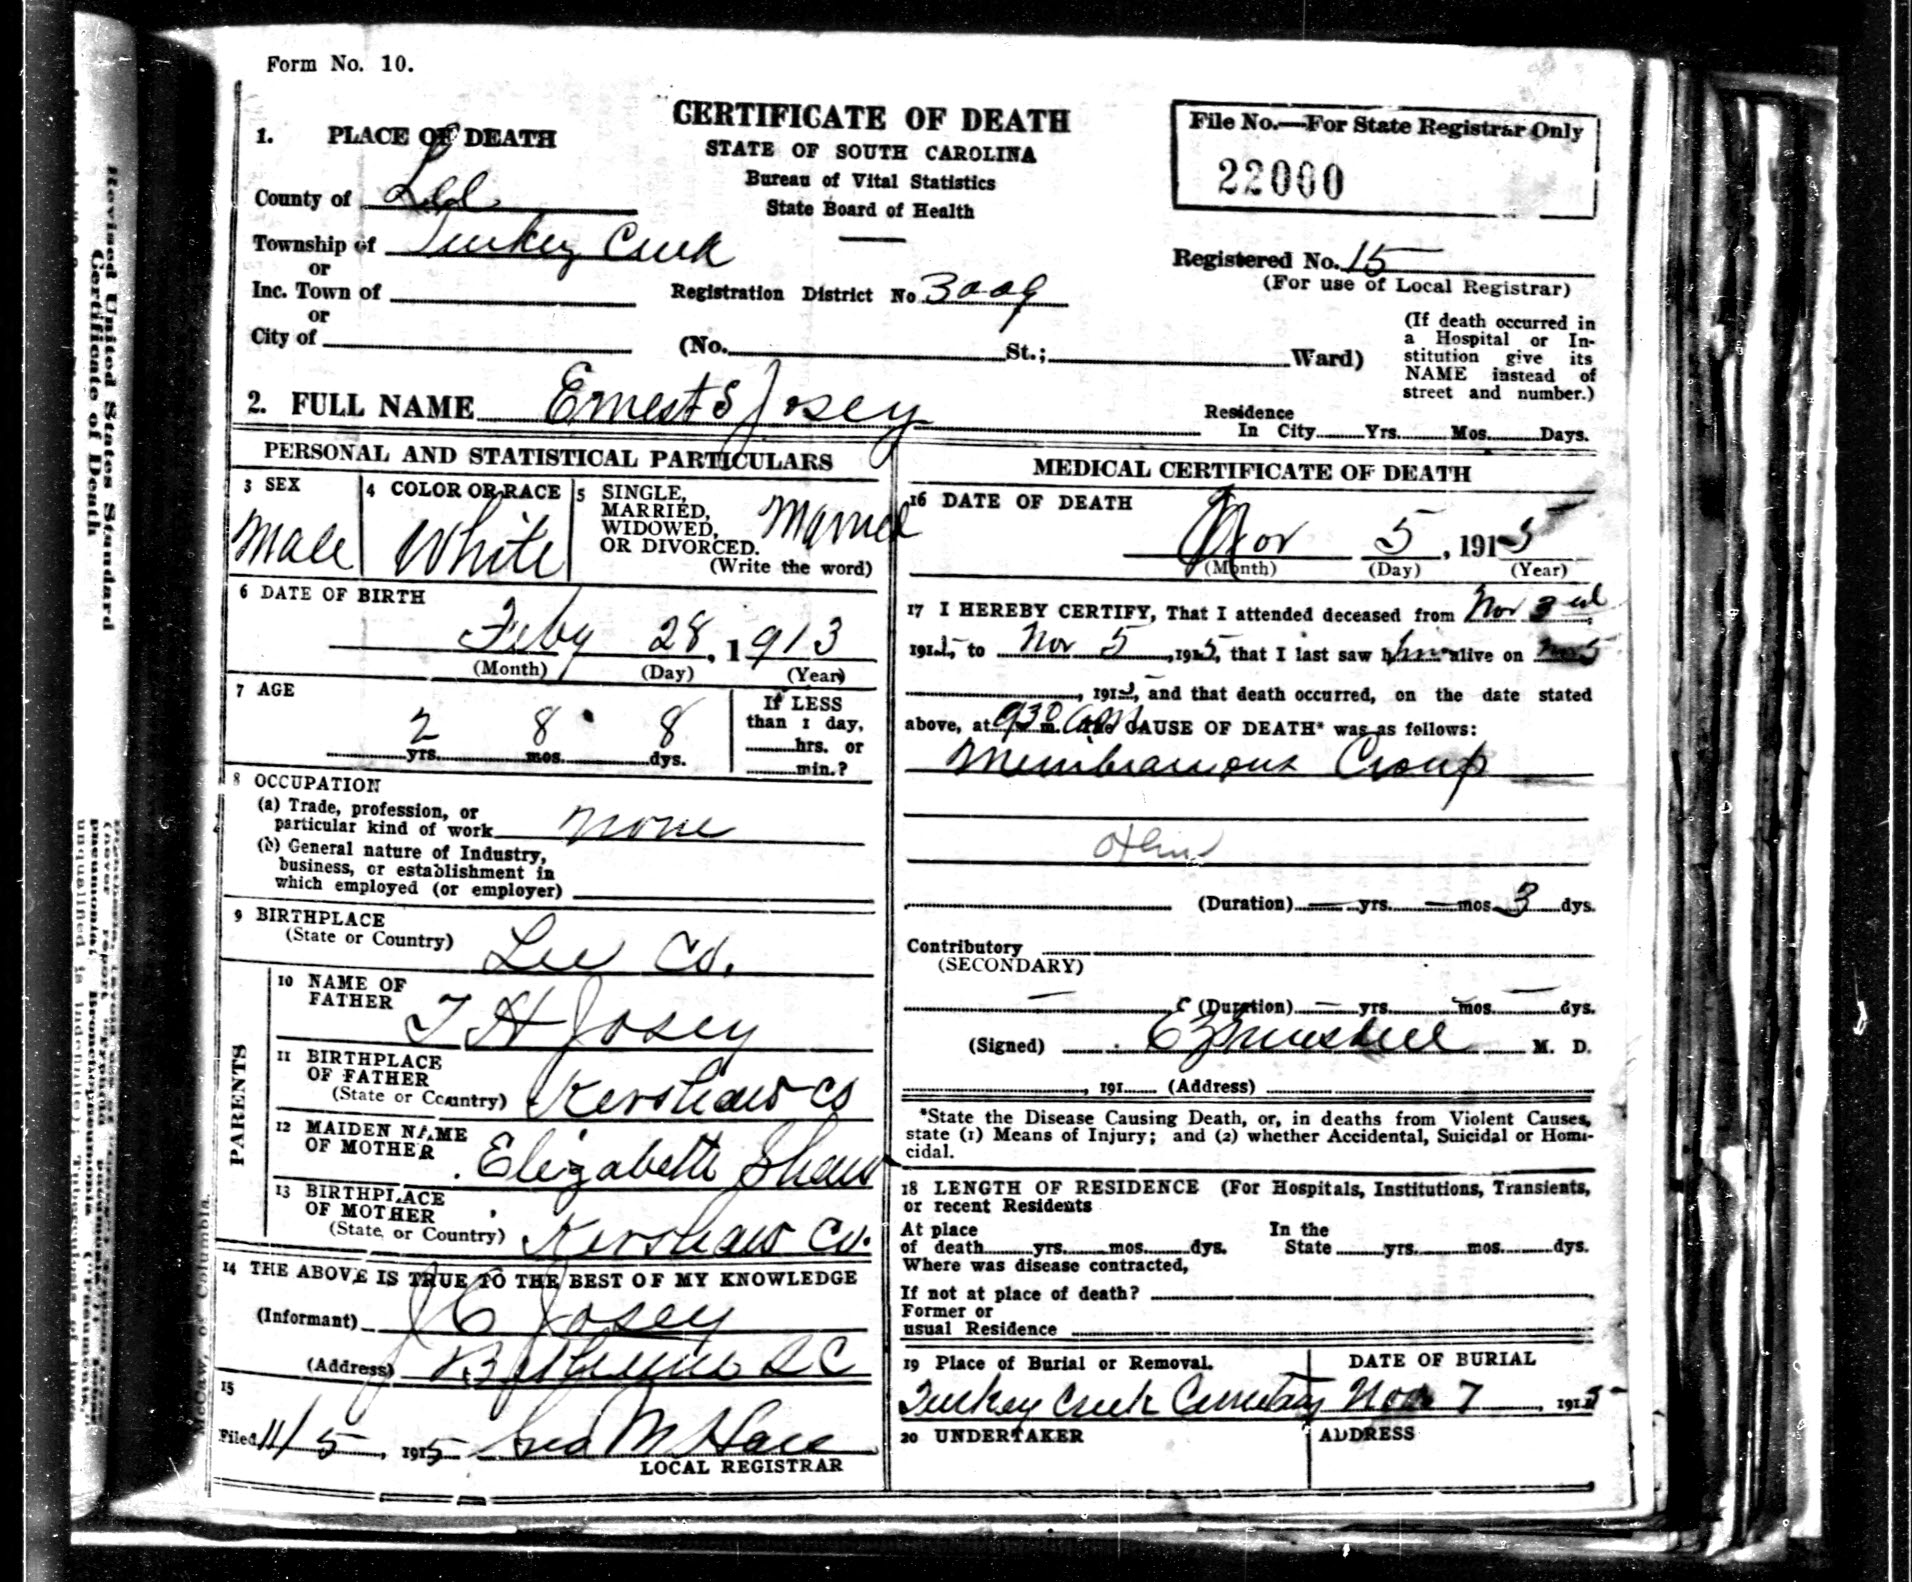 Form No. 10.
CERTIFICATE OF DEATH
STATE OF SOUTH CAROLINA
Bureau of Vital Statistics
State Board of Health
File No.—For State Registrar Only
22060
1. PLACE OF DEATH
County of Lee
Township of Turkey Creek
or
Inc. Town of
or
City of
Registration District No 3009
Registered No. 15
(For use of Local Registrar)
(No. St.; Ward)
(If death occurred in
a Hospital or In-
stitution give its
NAME instead of
street and number.)
2. FULL NAME Ernest S Josey
Residence
In City Yrs. Mos. Days.
PERSONAL AND STATISTICAL PARTICULARS
3 SEX
Male
4 COLOR OR RACE
White
5 SINGLE,
MARRIED,
WIDOWED,
OR DIVORCED.
(Write the word)
Married
6 DATE OF BIRTH
Feby 28, 1913
(Month) (Day) (Year)
7 AGE
2 yrs. 8 mos. 8 dys.
If LESS
than 1 day,
hrs. or
min.?
8 OCCUPATION
(a) Trade, profession, or
particular kind of work none
(b) General nature of Industry,
business, or establishment in
which employed (or employer)
9 BIRTHPLACE
(State or Country) Lee Co.
PARENTS
10 NAME OF
FATHER T H Josey
11 BIRTHPLACE
OF FATHER
(State or Country) Kershaw Co
12 MAIDEN NAME
OF MOTHER Elizabeth Shaw
13 BIRTHPLACE
OF MOTHER
(State or Country) Kershaw Co.
14 THE ABOVE IS TRUE TO THE BEST OF MY KNOWLEDGE
(Informant) J C Josey
(Address) Bethune S C
15
Filed 11/5, 1915 Geo M
LOCAL REGISTRAR
MEDICAL CERTIFICATE OF DEATH
16 DATE OF DEATH
Nov 5, 1915
(Month) (Day) (Year)
17 I HEREBY CERTIFY, That I attended deceased from Nov 3rd
1915, to Nov 5, 1915, that I last saw him alive on Nov 5
, 1915, and that death occurred, on the date stated
above, at 930 am. The CAUSE OF DEATH* was as follows:
Membranous Croup
(Duration) — yrs. — mos. 3 dys.
Contributory
(SECONDARY)
(Duration) — yrs. — mos. — dys.
(Signed) M. D.
, 191 (Address)
*State the Disease Causing Death, or, in deaths from Violent Causes,
state (1) Means of Injury; and (2) whether Accidental, Suicidal or Homi-
cidal.
18 LENGTH OF RESIDENCE (For Hospitals, Institutions, Transients,
or recent Residents
At place
of death yrs. mos. dys.
In the
State yrs. mos. dys.
Where was disease contracted,
If not at place of death?
Former or
usual Residence
19 Place of Burial or Removal.
Turkey Creek Cemetery
DATE OF BURIAL
Nov 7, 1915
20 UNDERTAKER
ADDRESS
Revised United States Standard
Certificate of Death
McCaw, of Columbia.